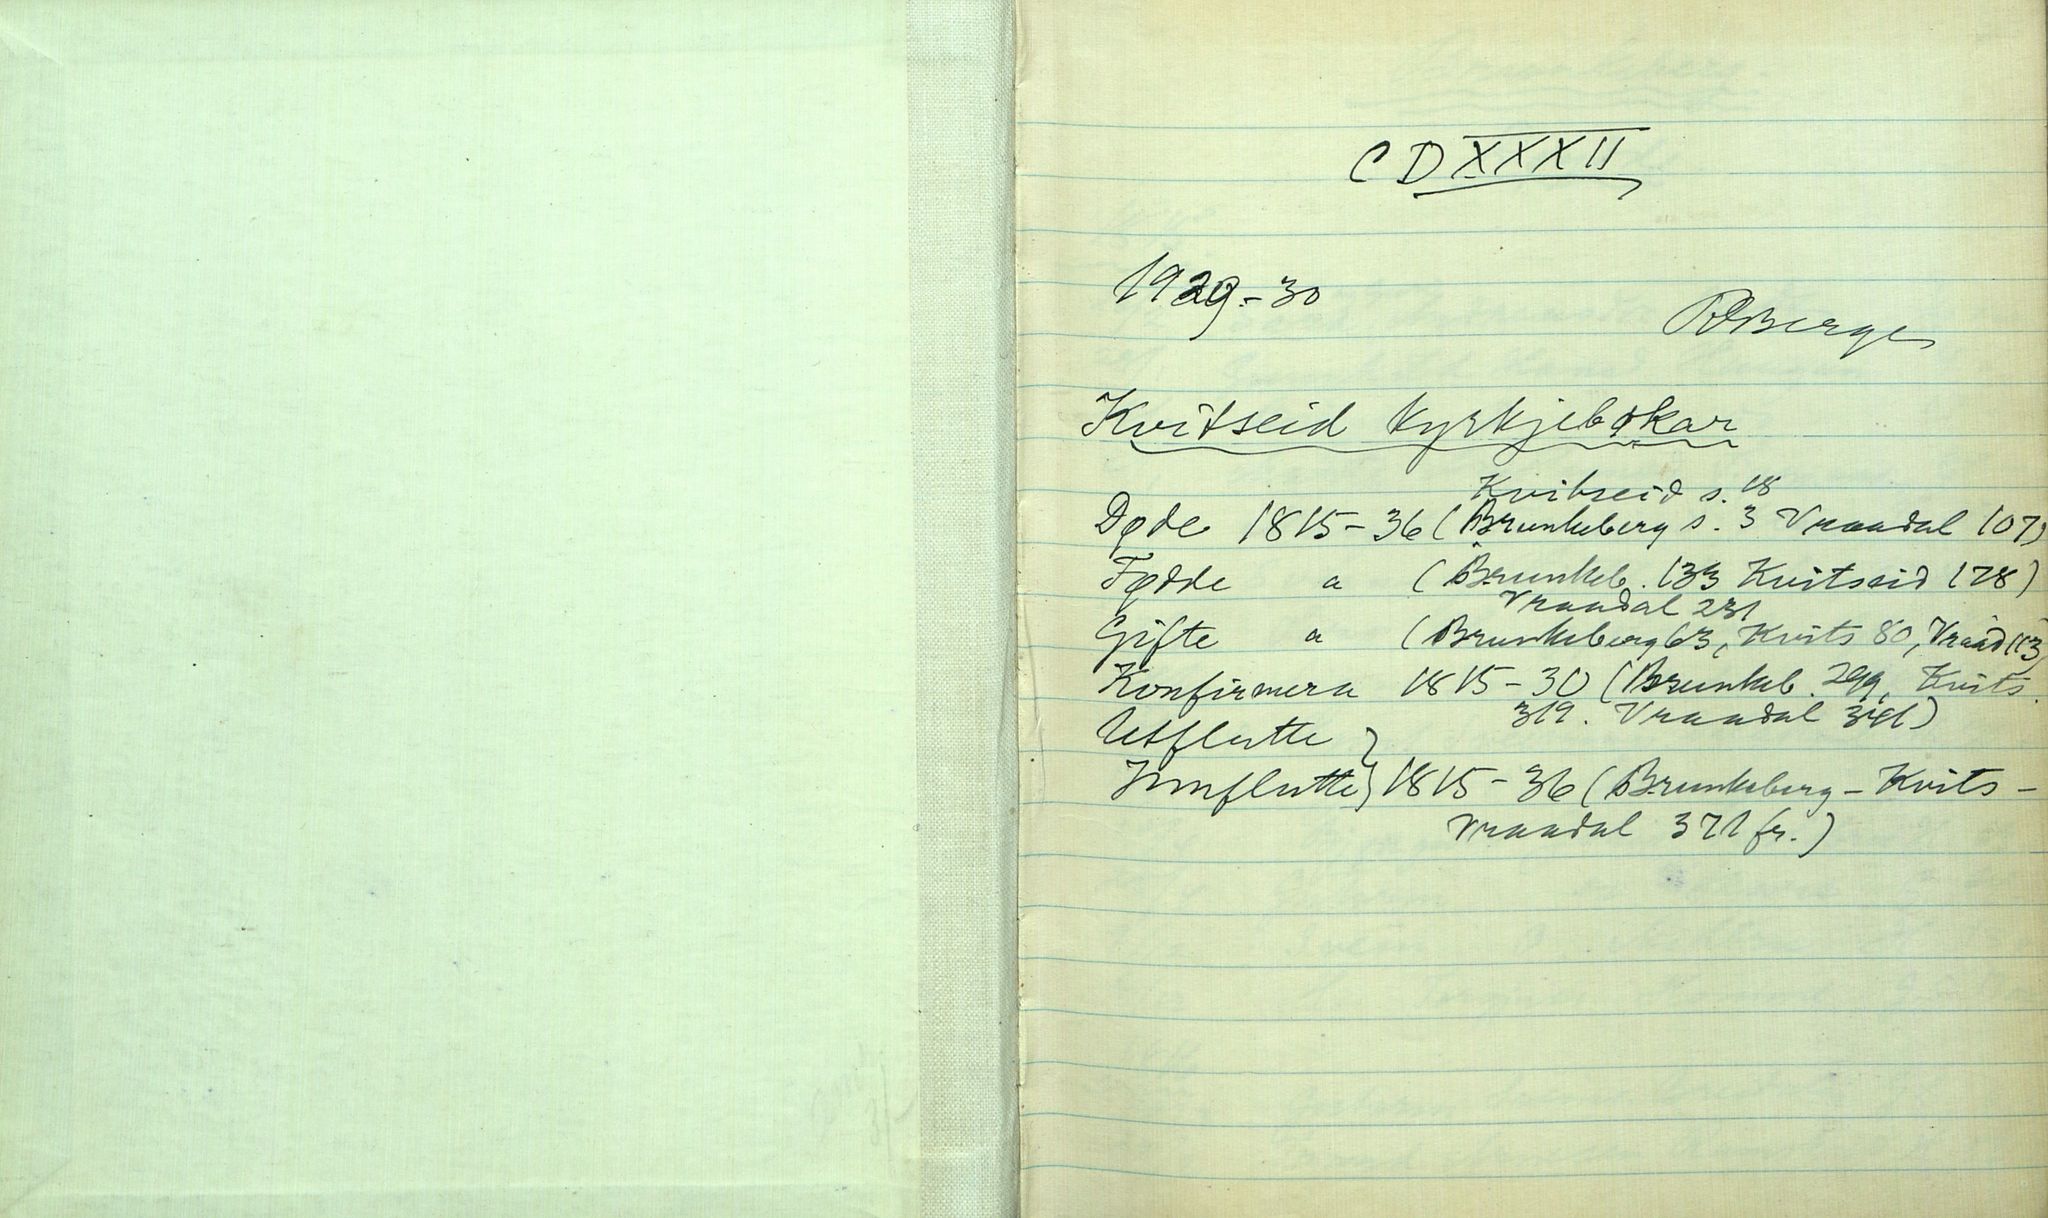 CDXXXII
1929-30
RBerge
Kvitseid kyrkjebøkar
Kvitseid s. 18
Døde 1815-36 (Brunkeberg s. 3 Vraadal 107)
Fødde " (Brunkeb. 133 Kvitseid 178)
Vraadal 231
Gifte " (Brunkeberg 63, Kvits 80, Vraad 113)
Konfirmera 1815-30 (Brunkeb. 299, Kvits.
319. Vraadal 341)
Utflutte }
Innflutte } 1815-36 (Brunkeberg - Kvits -
Vraadal 371 fr.)